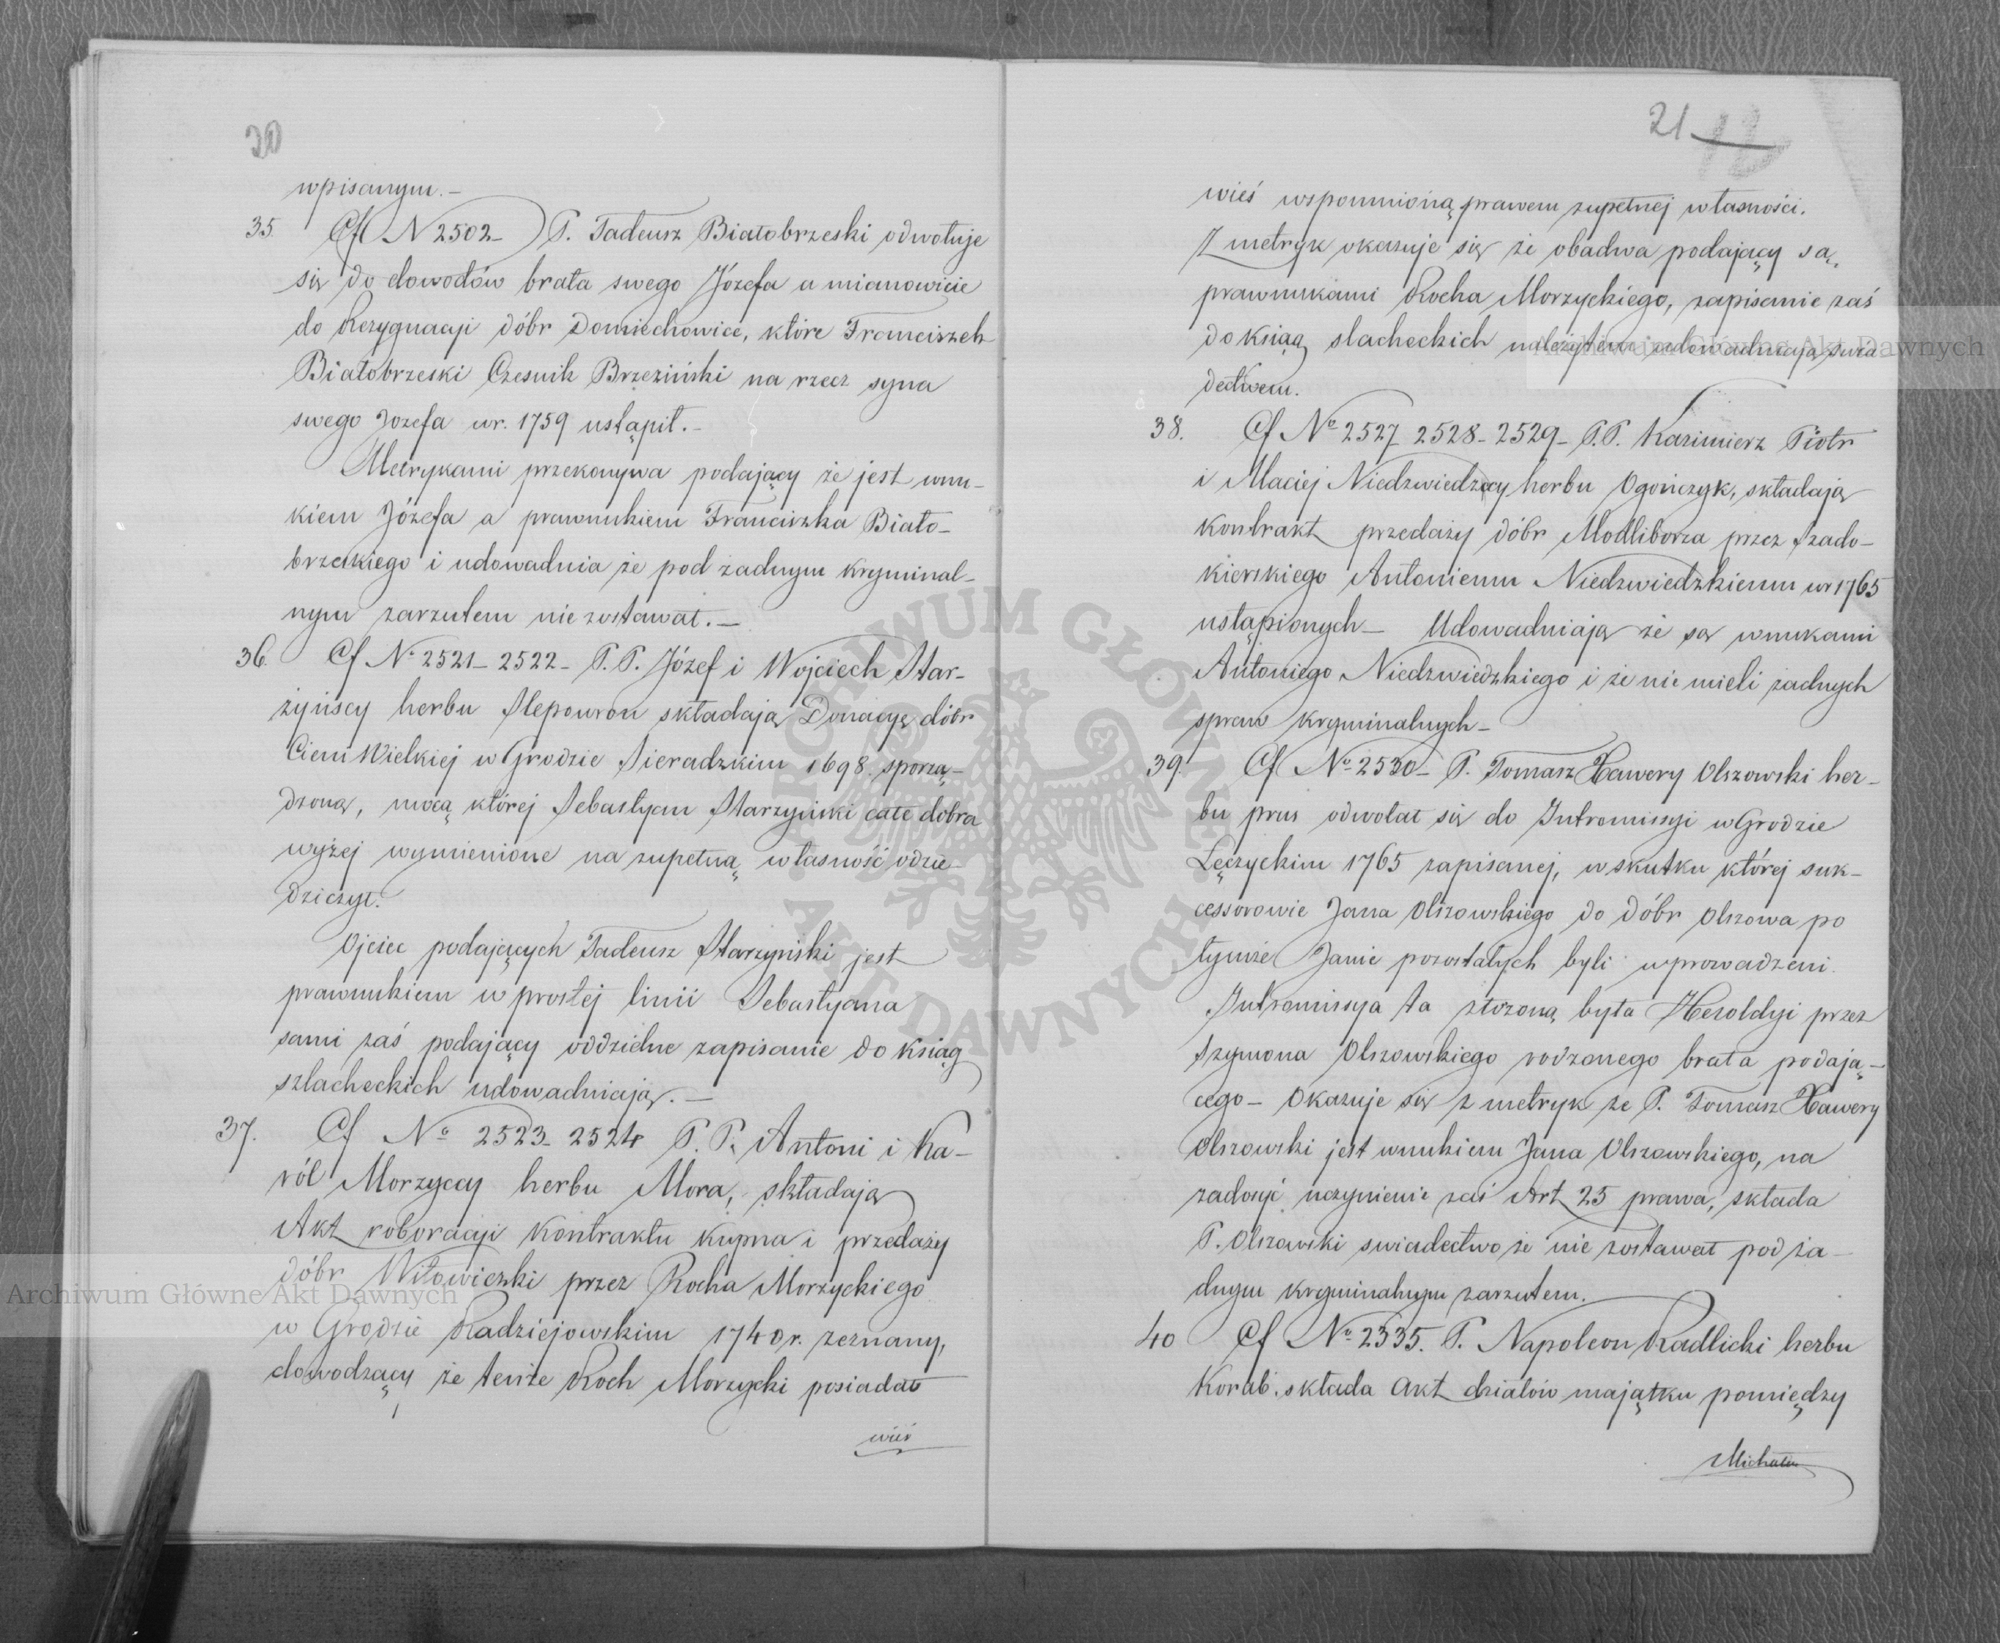 20
wpisanym.—
35. Cf N 2502— P. Tadeusz Białobrzeski odwołuje
się do dowodów brata swego Józefa a mianowicie
do Rezygnacji dóbr Domiechowice, które Franciszek
Białobrzeski Cześnik Brzeziński na rzecz syna
swego Jozefa w r. 1759 ustąpił.—
Metrykami przekonywa podający że jest wnu-
kiem Józefa a prawnukiem Franciszka Biało-
brzeskiego i udowadnia że pod żadnym kryminal-
nym zarzutem nie zostawał.—
36. Cf Nº 2521— 2522— P. P. Józef i Wojciech Star-
żyńscy herbu Slepowron składają Donacyą dóbr
Cieni Wielkiej w Grodzie Sieradzkim 1698. sporzą-
dzoną, mocą której Sebastyan Starzyński całe dobra
wyżej wymienione na zupełną własność odzie-
dziczył.
Ojciec podających Tadeusz Starzyński jest
prawnukiem w prostej linii Sebastyana
sami zaś podający oddzielne zapisanie do ksiąg
szlacheckich udowadniają.—
37. Cf Nº 2523— 2524 P. P. Antoni i Ka-
ról Morzyccy herbu Mora, składają
Akt roboracji Kontraktu kupna i przedaży
dóbr Witowiczki przez Rocha Morzyckiego
w Grodzie Radziejowskim 1740 r. zeznany,
dowodzący że tenże Roch Morzycki posiadał
wieś
21 12
wieś wspomnioną prawem zupełnej własności.
Z metryk okazuje się że obadwa podający są
prawnukami Rocha Morzyckiego, zapisanie zaś
do ksiąg slacheckich należytem udowadniają świa
dectwem.
38. Cf Nº 2527 2528— 2529— P.P. Kazimierz Piotr
i Maciej Niedzwiedzcy herbu Ogończyk, składają
Kontrakt przedaży dóbr Modliborza przez Szado-
kierskiego Antoniemu Niedzwiedzkiemu w r 1765
ustąpionych— Udowadniają że są wnukami
Antoniego Niedzwiedzkiego i że nie mieli żadnych
spraw kryminalnych—
39. Cf Nº 2530— P. Tomasz Xawery Olszowski her-
bu prus odwołał się do Intromissyi w Grodzie
Łęczyckim 1765 zapisanej, w skutku której suk-
cessorowie Jana Olszowskiego do dóbr Olszowa po
tymże Janie pozostałych byli wprowadzeni.
Intromissya ta złożoną była Heroldyi przez
Szymona Olszowskiego rodzonego brata podają-
cego— Okazuje się z metryk że P. Tomasz Xawery
Olszowski jest wnukiem Jana Olszowskiego, na
zadosyć uczynienie zaś Art 25 prawa, składa
P. Olszowski swiadectwo że nie zostawał pod ża-
dnym kryminalnym zarzutem.
40 Cf Nº 2335. P. Napoleon Radlicki herbu
Korab. składa Akt działów majątku pomiędzy
Michałem
Archiwum Główne Akt Dawnych
Archiwum Główne Akt Dawnych
ARCHIWUM GŁÓWNE AKT DAWNYCH